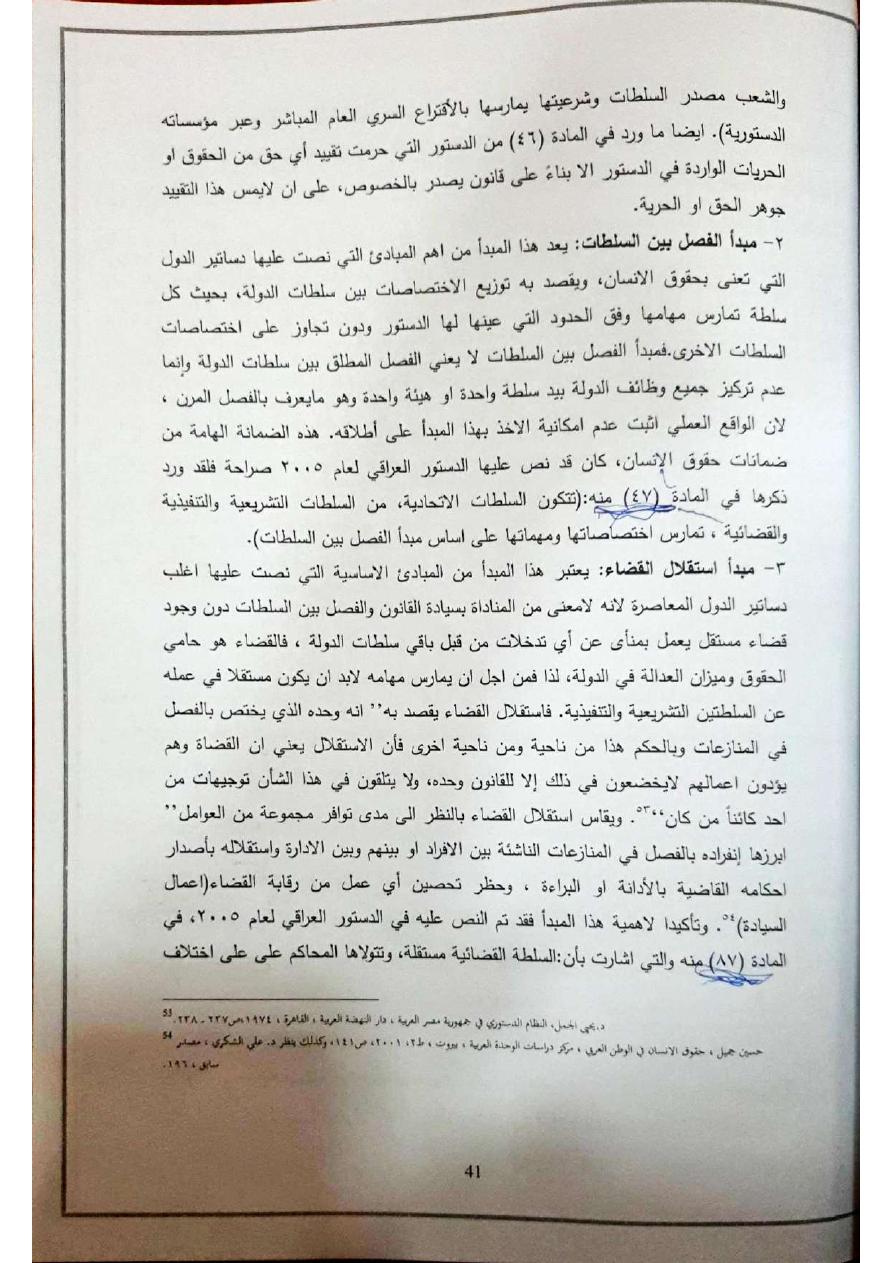 والشعب مصدر السلطات وشرعيتها يمارسها بالأقتراع السري العام المباشر وعبر مؤسساته
الدستورية). ايضا ما ورد في المادة (٤٦) من الدستور التي حرمت تقييد أي حق من الحقوق او
الحريات الواردة في الدستور الا بناءً على قانون يصدر بالخصوص، على ان لايمس هذا التقييد
جوهر الحق او الحرية.
٢- مبدأ الفصل بين السلطات: يعد هذا المبدأ من اهم المبادئ التي نصت عليها دساتير الدول
التي تعنى بحقوق الانسان، ويقصد به توزيع الاختصاصات بين سلطات الدولة، بحيث كل
سلطة تمارس مهامها وفق الحدود التي عينها لها الدستور ودون تجاوز على اختصاصات
السلطات الاخرى.فمبدأ الفصل بين السلطات لا يعني الفصل المطلق بين سلطات الدولة وإنما
عدم تركيز جميع وظائف الدولة بيد سلطة واحدة او هيئة واحدة وهو مايعرف بالفصل المرن ،
لان الواقع العملي اثبت عدم امكانية الاخذ بهذا المبدأ على أطلاقه. هذه الضمانة الهامة من
ضمانات حقوق الإنسان، كان قد نص عليها الدستور العراقي لعام ٢٠٠٥ صراحة فلقد ورد
ذكرها في المادة (٤٧) منه:(تتكون السلطات الاتحادية، من السلطات التشريعية والتنفيذية
والقضائية ، تمارس اختصاصاتها ومهماتها على اساس مبدأ الفصل بين السلطات).
٣- مبدأ استقلال القضاء: يعتبر هذا المبدأ من المبادئ الاساسية التي نصت عليها اغلب
دساتير الدول المعاصرة لانه لامعنى من المناداة بسيادة القانون والفصل بين السلطات دون وجود
قضاء مستقل يعمل بمنأى عن أي تدخلات من قبل باقي سلطات الدولة ، فالقضاء هو حامي
الحقوق وميزان العدالة في الدولة، لذا فمن اجل ان يمارس مهامه لابد ان يكون مستقلا في عمله
عن السلطتين التشريعية والتنفيذية. فاستقلال القضاء يقصد به’’ انه وحده الذي يختص بالفصل
في المنازعات وبالحكم هذا من ناحية ومن ناحية اخرى فأن الاستقلال يعني ان القضاة وهم
يؤدون اعمالهم لايخضعون في ذلك إلا للقانون وحده، ولا يتلقون في هذا الشأن توجيهات من
احد كائناً من كان‘‘٥٣. ويقاس استقلال القضاء بالنظر الى مدى توافر مجموعة من العوامل’’
ابرزها إنفراده بالفصل في المنازعات الناشئة بين الافراد او بينهم وبين الادارة واستقلاله بأصدار
احكامه القاضية بالأدانة او البراءة ، وحظر تحصين أي عمل من رقابة القضاء(اعمال
السيادة)٥٤. وتأكيدا لاهمية هذا المبدأ فقد تم النص عليه في الدستور العراقي لعام ٢٠٠٥، في
المادة (٨٧) منه والتي اشارت بأن:السلطة القضائية مستقلة، وتتولاها المحاكم على على اختلاف
د.يحيى الجمل، النظام الدستوري في جمهورية مصر العربية ، دار النهضة العربية ، القاهرة ، ١٩٧٤،ص٢٣٧ـ ٢٣٨. 53
حسين جميل ، حقوق الانسان في الوطن العربي ، مركز دراسات الوحدة العربية ، بيروت ، ط٢، ٢٠٠١، ص١٤١، وكذلك ينظر د. علي الشكري ، مصدر 54
سابق ، ١٩٦.
41